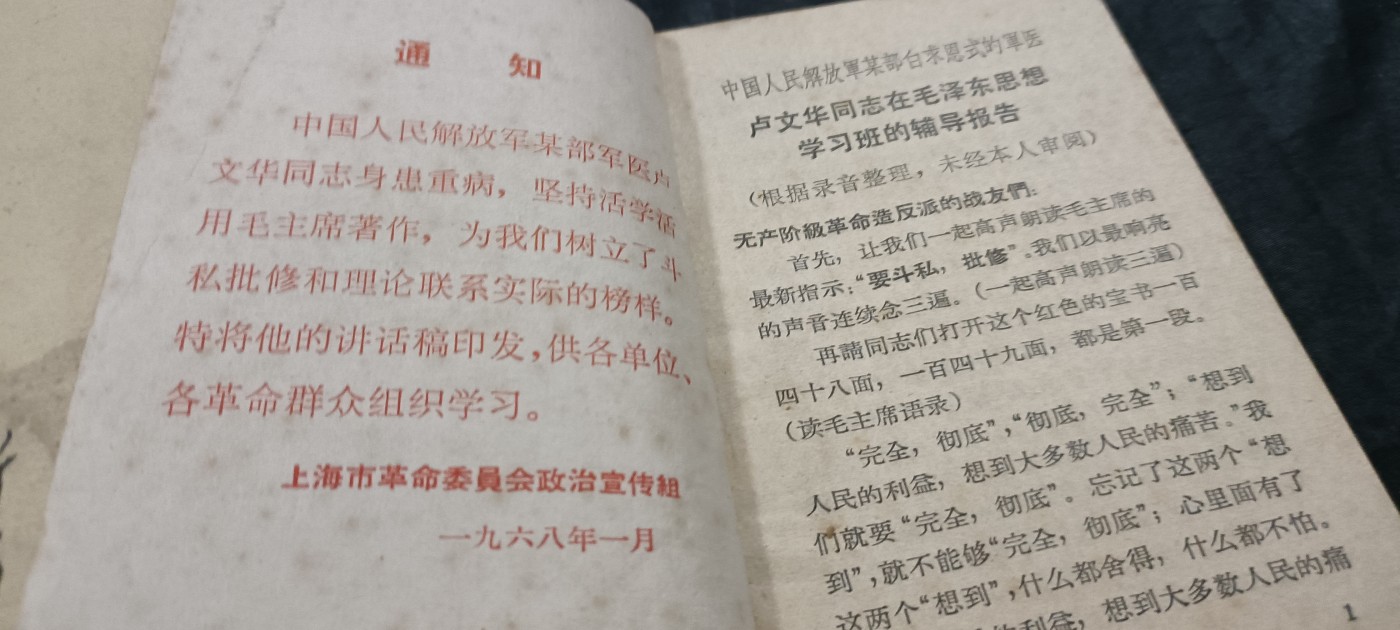 通 知
中国人民解放军某部军医卢
文华同志身患重病，坚持活学活
用毛主席著作，为我们树立了斗
私批修和理论联系实际的榜样。
特将他的讲话稿印发，供各单位、
各革命群众组织学习。
上海市革命委員会政治宣传組
一九六八年一月
中国人民解放軍某部白求恩式的軍医
卢文华同志在毛泽东思想
学习班的辅导报告
（根据录音整理，未经本人审阅）
无产阶級革命造反派的战友們：
首先，让我们一起高声朗读毛主席的
最新指示：“要斗私，批修”。我们以最响亮
的声音连续念三遍。（一起高声朗读三遍）
再請同志们打开这个红色的宝书一百
四十八面，一百四十九面，都是第一段。
（读毛主席语录）
“完全，彻底”，“彻底，完全”；“想到
人民的利益，想到大多数人民的痛苦。”我
们就要“完全，彻底”。忘记了这两个“想
到”，就不能够“完全，彻底”；心里面有了
这两个“想到”，什么都舍得，什么都不怕。
的利益，想到大多数人民的痛
1